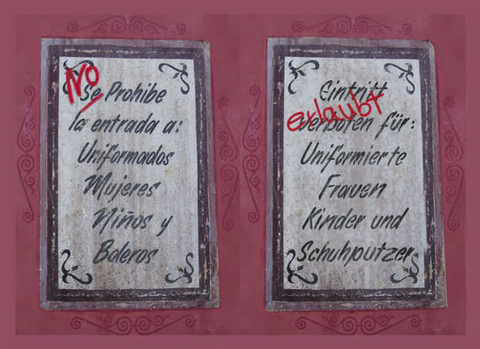 No
Se Prohibe
la entrada a:
Uniformados
Mujeres
Niños y
Boleros
Eintritt
erlaubt
Verboten für:
Uniformierte
Frauen
Kinder und
Schuhputzer